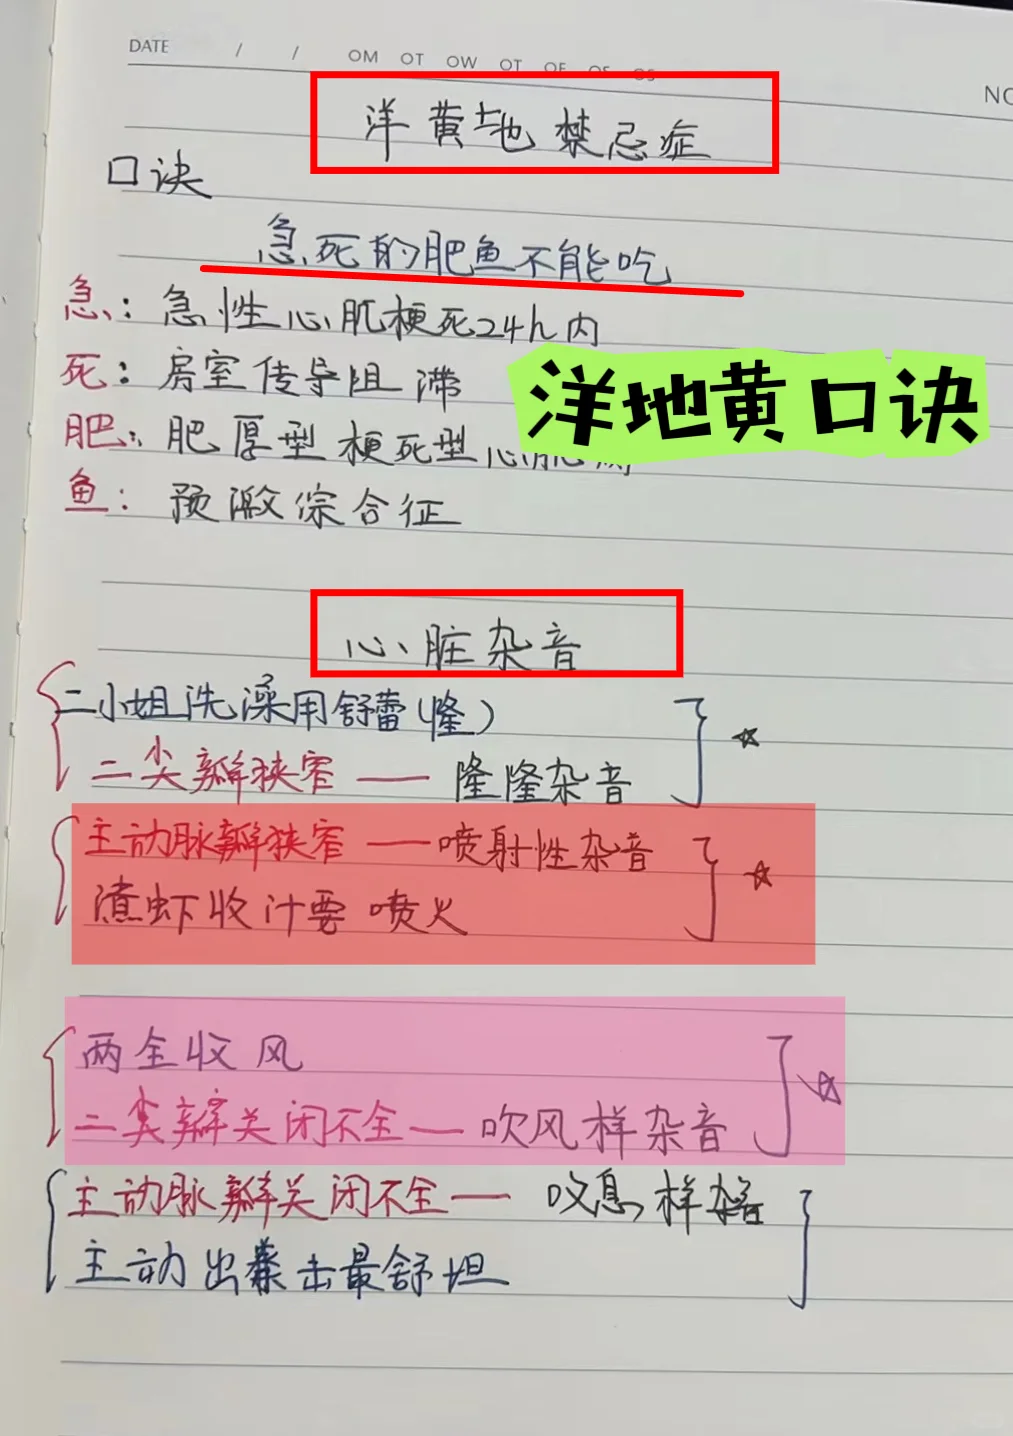 DATE / / OM OT OW OT OF OS OS
NO
洋黄地禁忌症
口诀
急死的肥鱼不能吃
急：急性心肌梗死24h内
死：房室传导阻滞
洋地黄口诀
肥：肥厚型梗死型心肌
鱼：预激综合征
心脏杂音
二小姐洗澡用舒蕾(隆)
二尖瓣狭窄——隆隆杂音
主动脉瓣狭窄——喷射性杂音
渣虾收汁要喷火
两全收风
二尖瓣关闭不全——吹风样杂音
主动脉瓣关闭不全——叹息样杂音
主动出拳击最舒坦